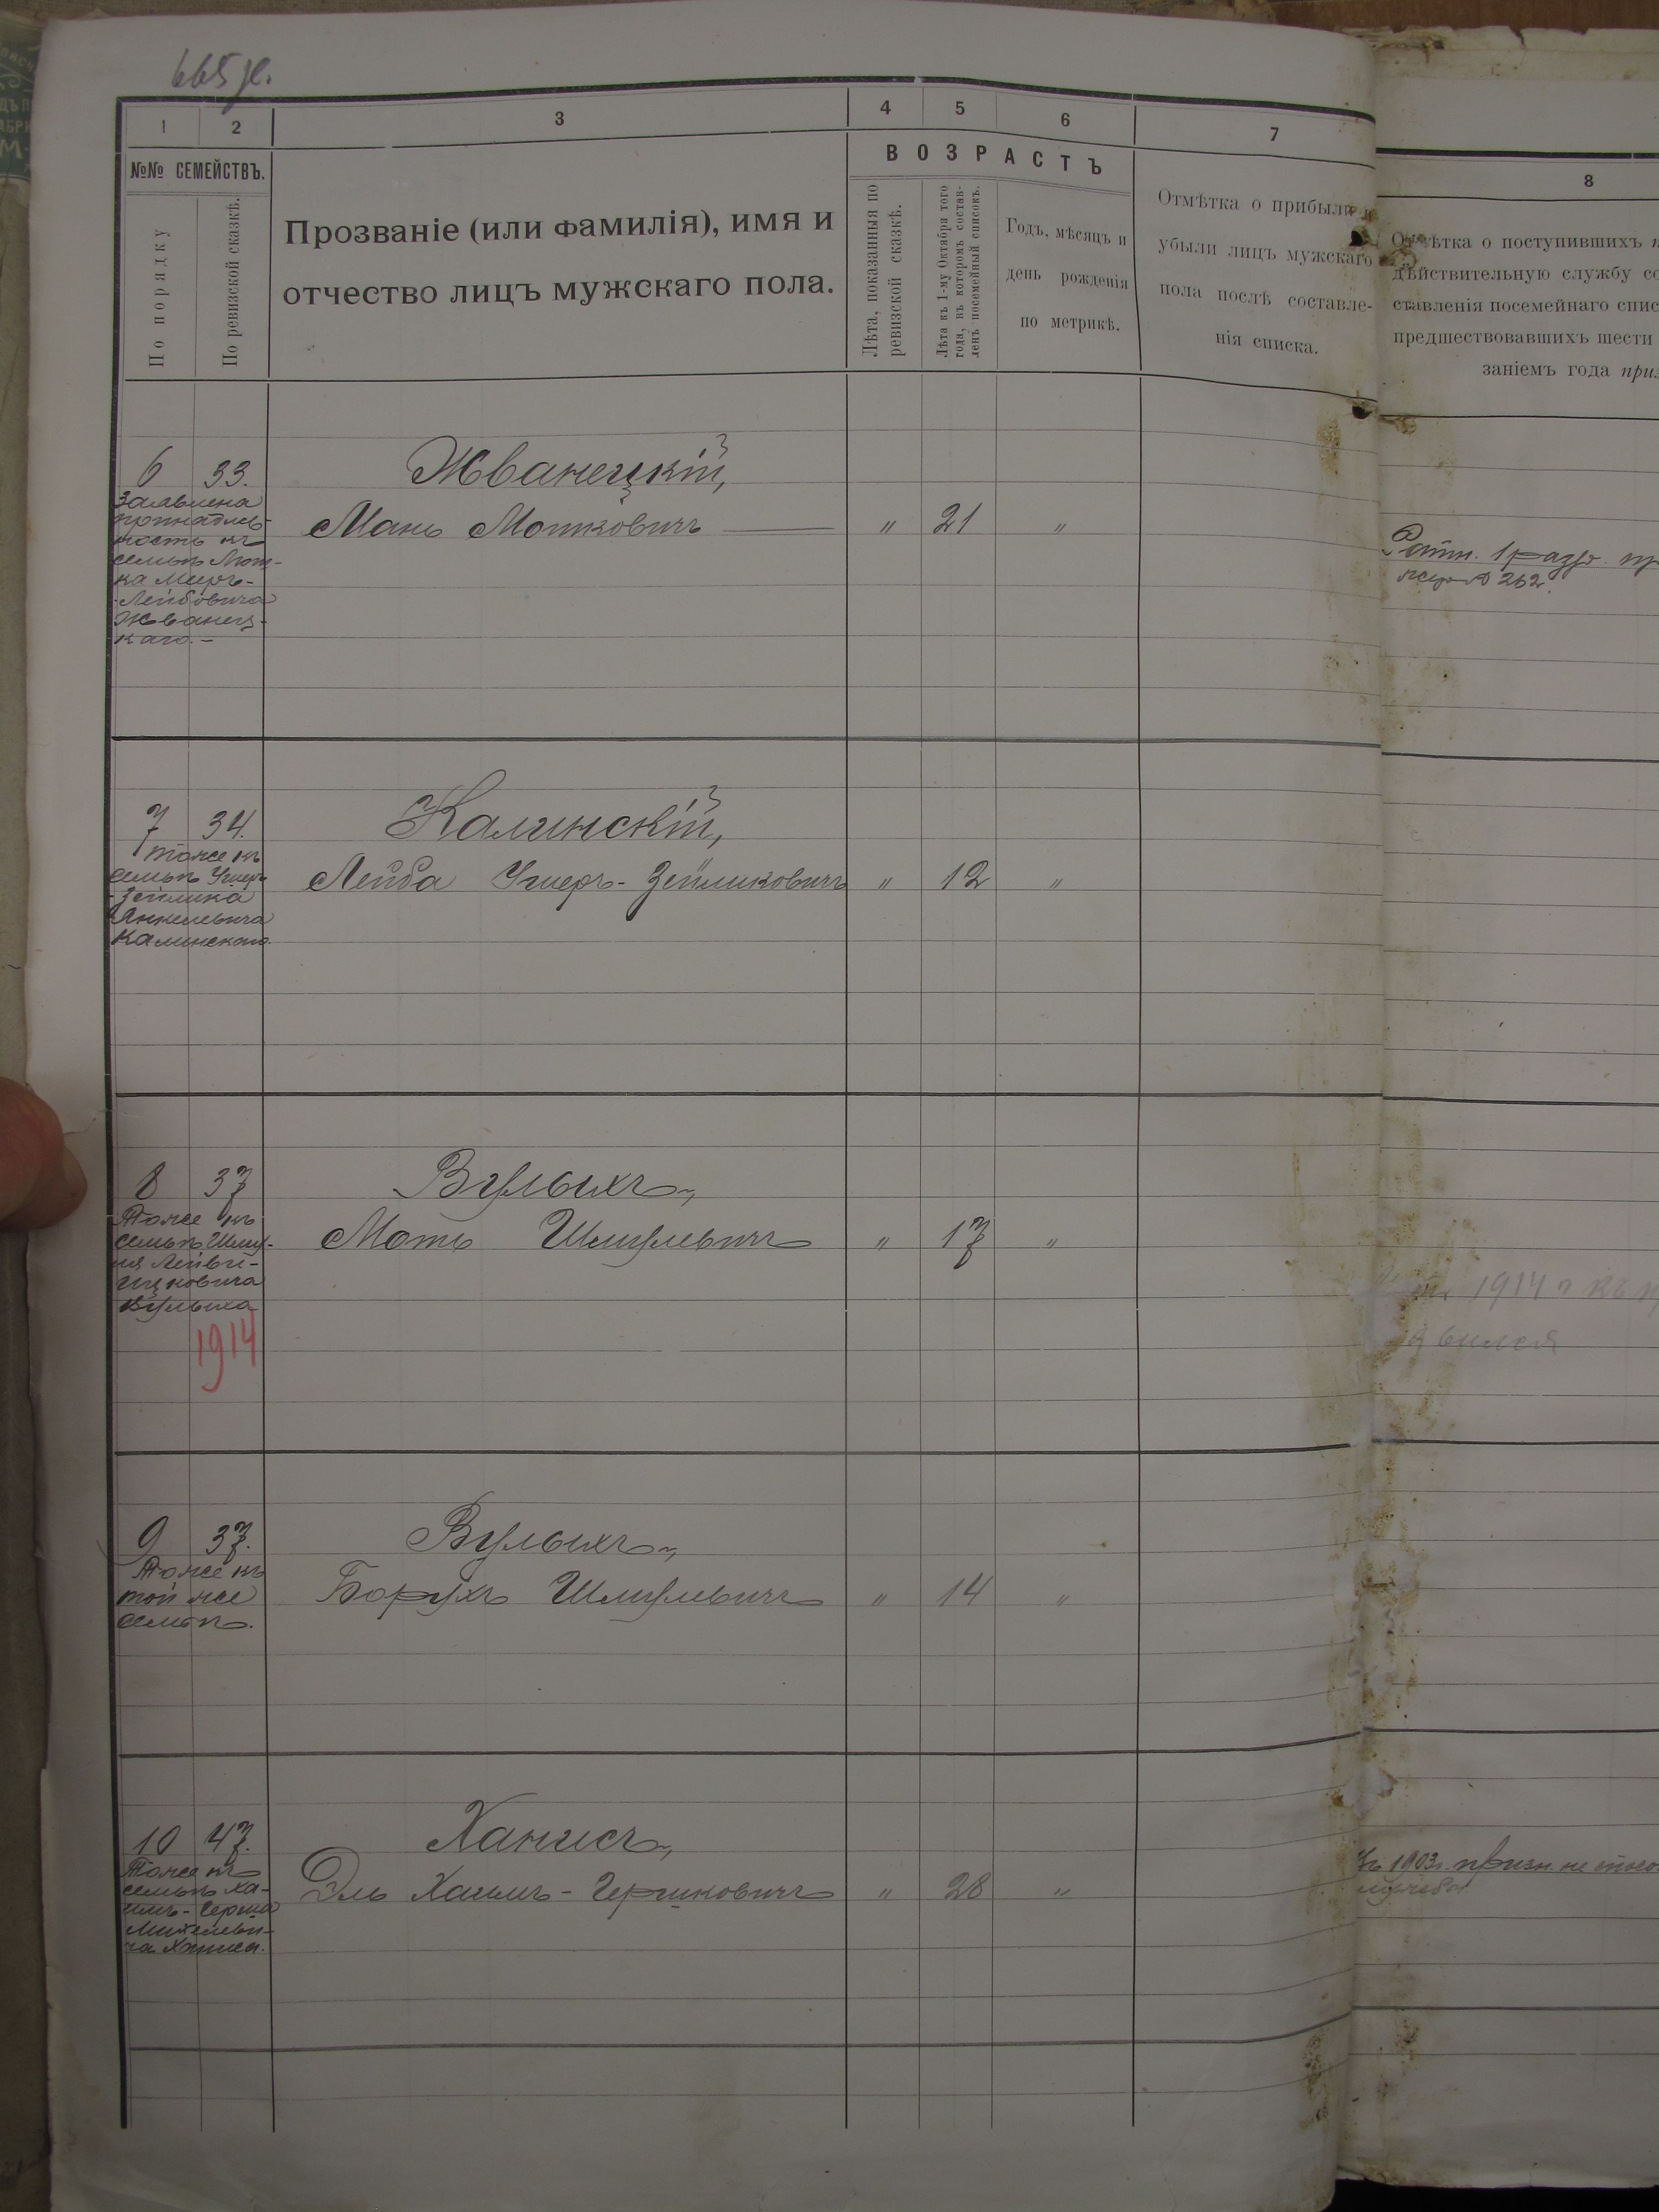 665 н.
1 2 3 4 5 6 7
8
№№ СЕМЕЙСТВЪ.
По порядку
По ревизской сказкѣ.
Прозваніе (или фамилія), имя и
отчество лицъ мужскаго пола.
ВОЗРАСТЪ
Лѣта, показанныя по
ревизской сказкѣ.
Лѣта къ 1-му Октября того
года, въ которомъ состав-
ленъ посемейный списокъ.
Годъ, мѣсяцъ и
день рожденія
по метрикѣ.
Отмѣтка о прибыли и
убыли лицъ мужскаго
пола послѣ составле-
нія списка.
Отмѣтка о поступившихъ
дѣйствительную службу со
ставленія посемейнаго спис
предшествовавшихъ шести
заніемъ года приз
6 33. Жванецкій,
Заявлена
принадлеж-
ность къ
семьѣ Мот-
ка Меръ-
Лейбовича
Жванец-
каго.-
Мань Мотковичъ — " 21 "
Ратн. 1 разр. пр
жер. № 262.
7 34. Калинскій,
тоже къ
семьѣ Ушеръ
-Зейлика
Янкелевича
Калинскаго.
Лейба Ушеръ-Зейликовичъ " 12 "
8 37 Вулыхъ,
Тоже къ
семьѣ Шму-
ля Лейви-
Ицковича
Вулыха
1914
Моть Шмулевичъ " 17 "
1914 г къ
явился
9 37. Вулыхъ,
Тоже къ
той же
семьѣ.
Борухъ Шмулевичъ " 14 "
10 47. Ханисъ,
Тоже къ
семьѣ Ха-
имъ-Герша
Михелеви-
ча Ханиса.
Эль Хаимъ-Гершковичъ " 28 "
Въ 1903г. призн. не спосо
службы